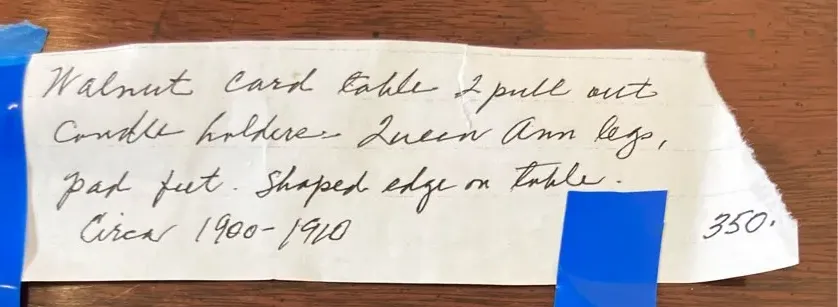 Walnut Card table 2 pull out
Candle holders - Queen Ann legs,
pad feet. Shaped edge on table.
Circa 1900-1910
350.